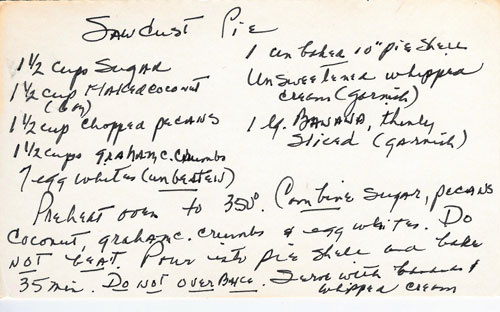 Sawdust Pie
1 1/2 cups Sugar
1 1/2 cup Flaked coconut
(6 oz)
1 1/2 cup chopped pecans
1 1/2 cups graham c. crumbs
7 egg whites (unbeaten)
1 unbaked 10" pie shell
Unsweetened whipped
cream (garnish)
1 lg. Banana, thinly
sliced (garnish)
Preheat oven to 350°. Combine sugar, pecans
coconut, graham c. crumbs & egg whites. Do
not beat. Pour into pie shell and bake
35 min. Do not overbake. Serve with bananas &
whipped cream